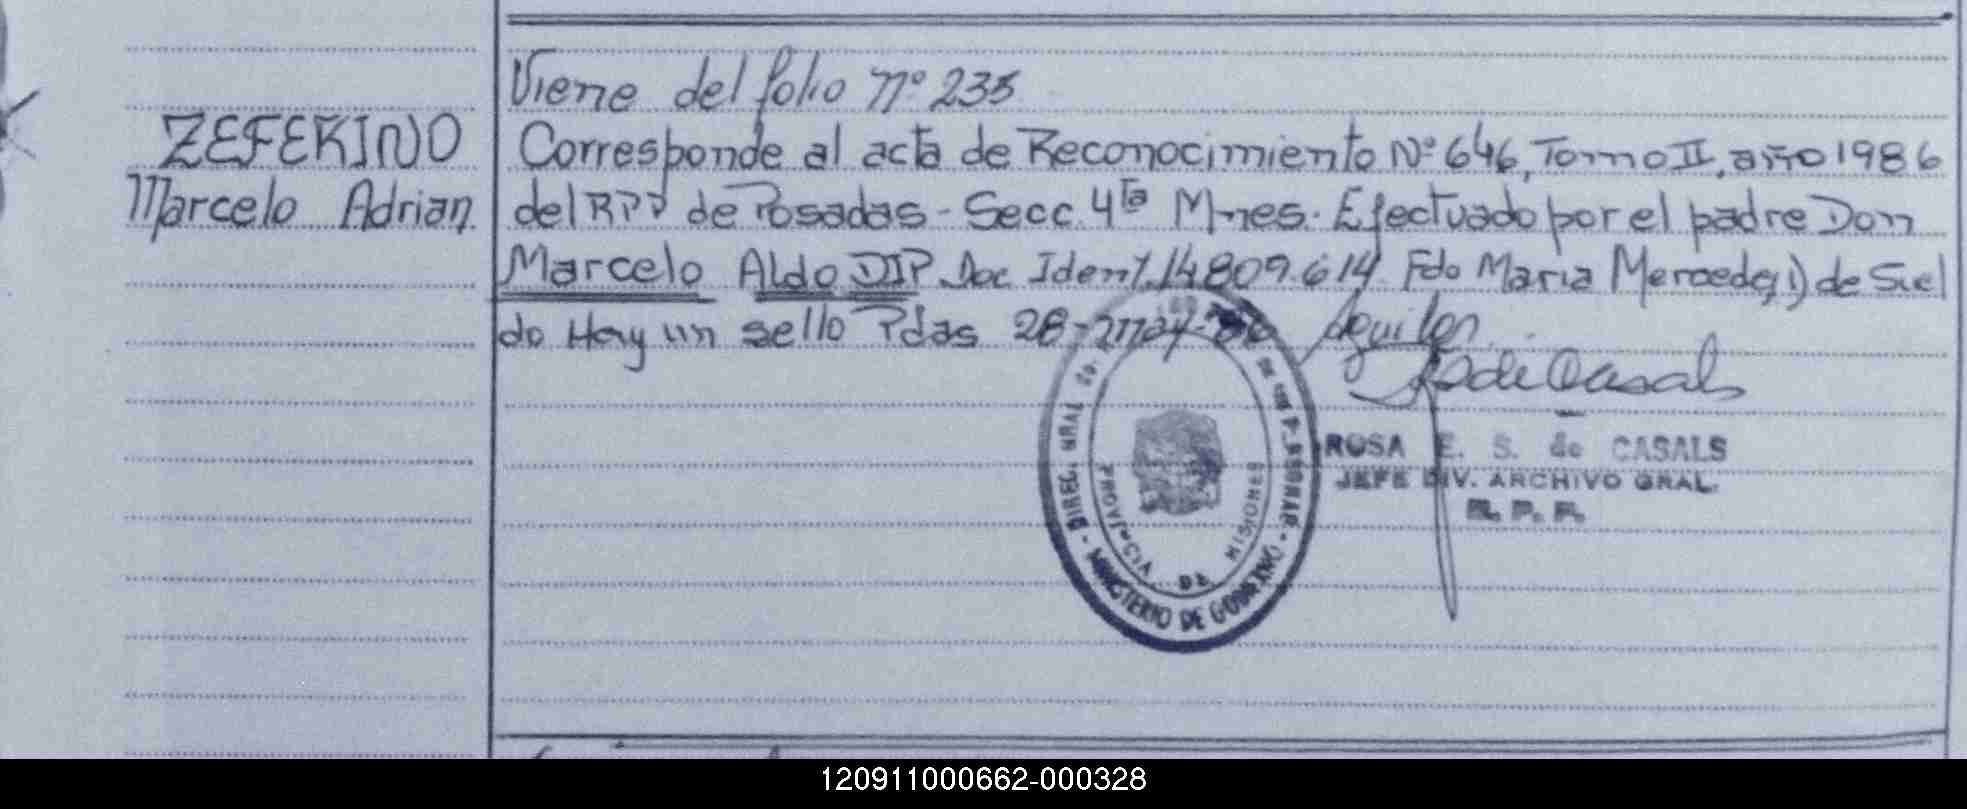 Viene del folio Nº 235
ZEFERINO
Marcelo Adrian.
Corresponde al acta de Reconocimiento Nº 646, Tomo II, año 1986
del RPP de Posadas - Secc. 4ta Mnes. Efectuado por el padre Don
Marcelo Aldo DIP Doc Ident. 14.809.614 Fdo Maria Mercedes de Suel
do Hay un sello Pdas 28-may-86 Aguilar
ROSA E. S. de CASALS
JEFE DIV. ARCHIVO GRAL.
R. P. P.
DIREC. GRAL
MINISTERIO DE GOBIERNO
PROVINCIA DE MISIONES
120911000662-000328